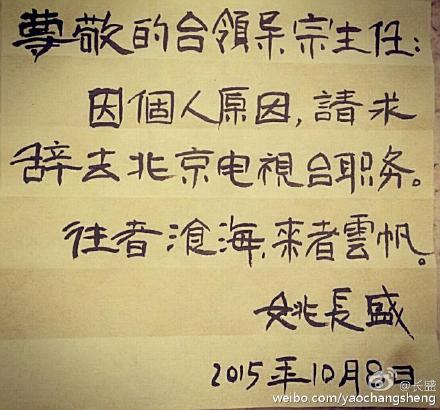 尊敬的台領导宗主任:
因個人原因,請求
辞去北京电視台职务。
往者滄海,來者雲帆。
姚長盛
2015年10月8日
@长盛
weibo.com/yaochangsheng